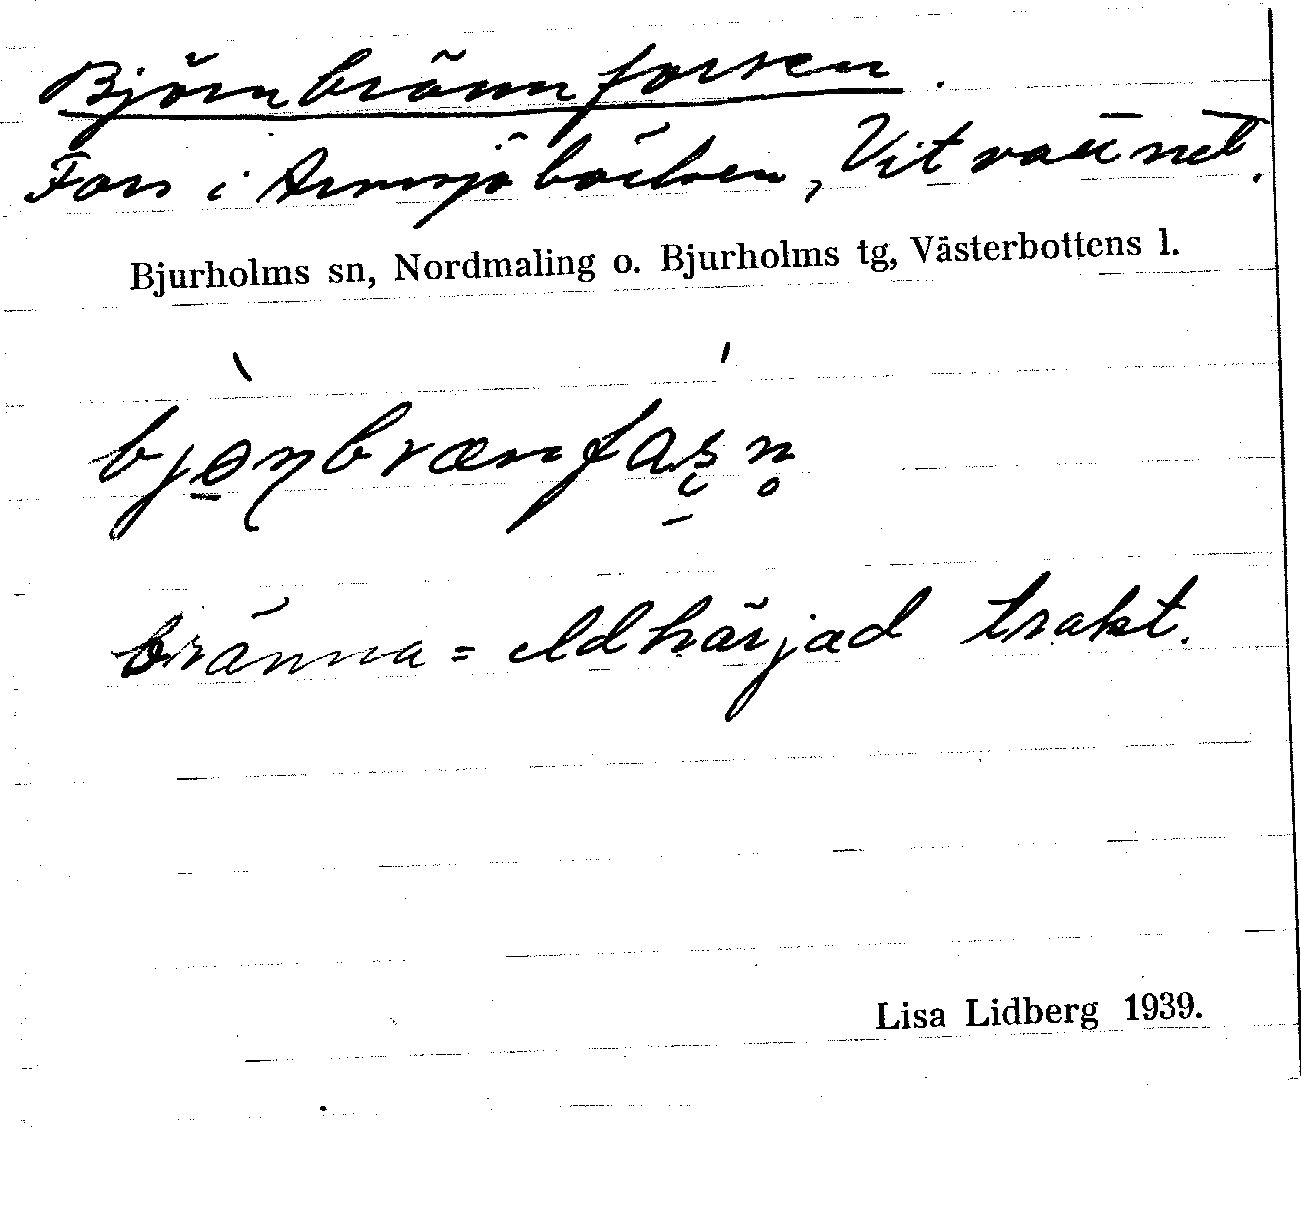 Björnbrännforsen.
Fors i Armsjöbäcken, Vitvattnet.
Bjurholms sn, Nordmaling o. Bjurholms tg, Västerbottens l.
bjɵ̠̀ɳbrænfáʂ̠n̥
bränna = eldhärjad trakt.
Lisa Lidberg 1939.